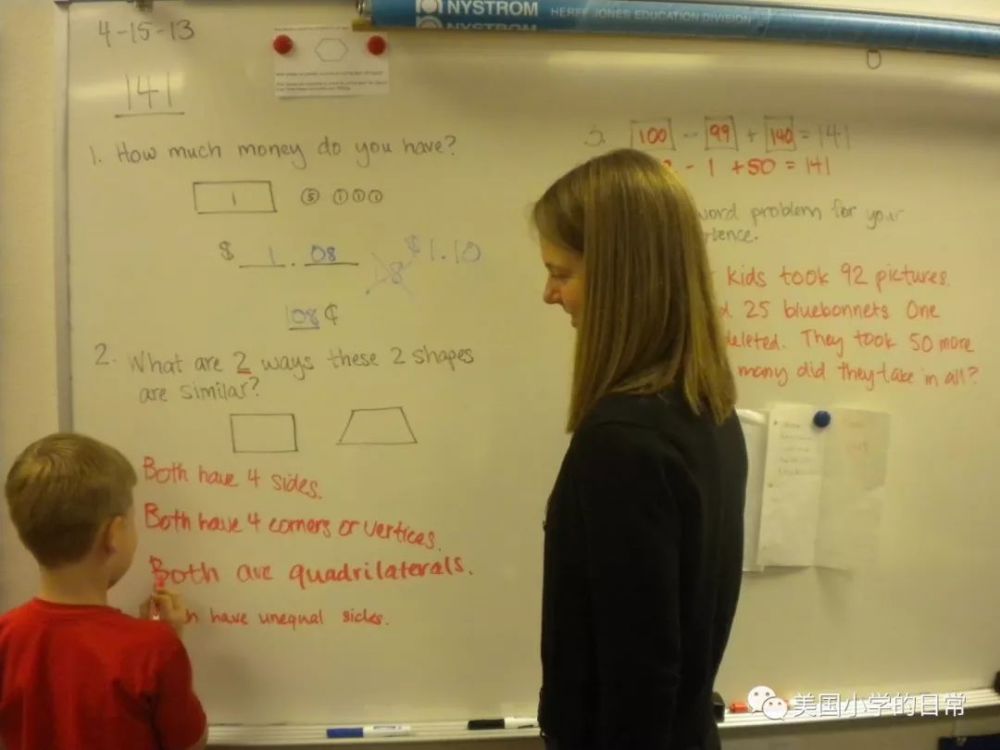 NYSTROM HERFF JONES EDUCATION DIVISION
NYSTROM
4-15-13
141
1. How much money do you have?
1 5 1 1 1
$ 1 . 08
18 $1.10
108 ¢
2. What are 2 ways these 2 shapes
are similar?
Both have 4 sides.
Both have 4 corners or vertices.
Both are quadrilaterals.
have unequal sides.
3. 100 - 99 + 140 = 141
- 1 + 50 = 141
word problem for your
kids took 92 pictures.
25 bluebonnets One
deleted. They took 50 more
many did they take in all?
美国小学的日常